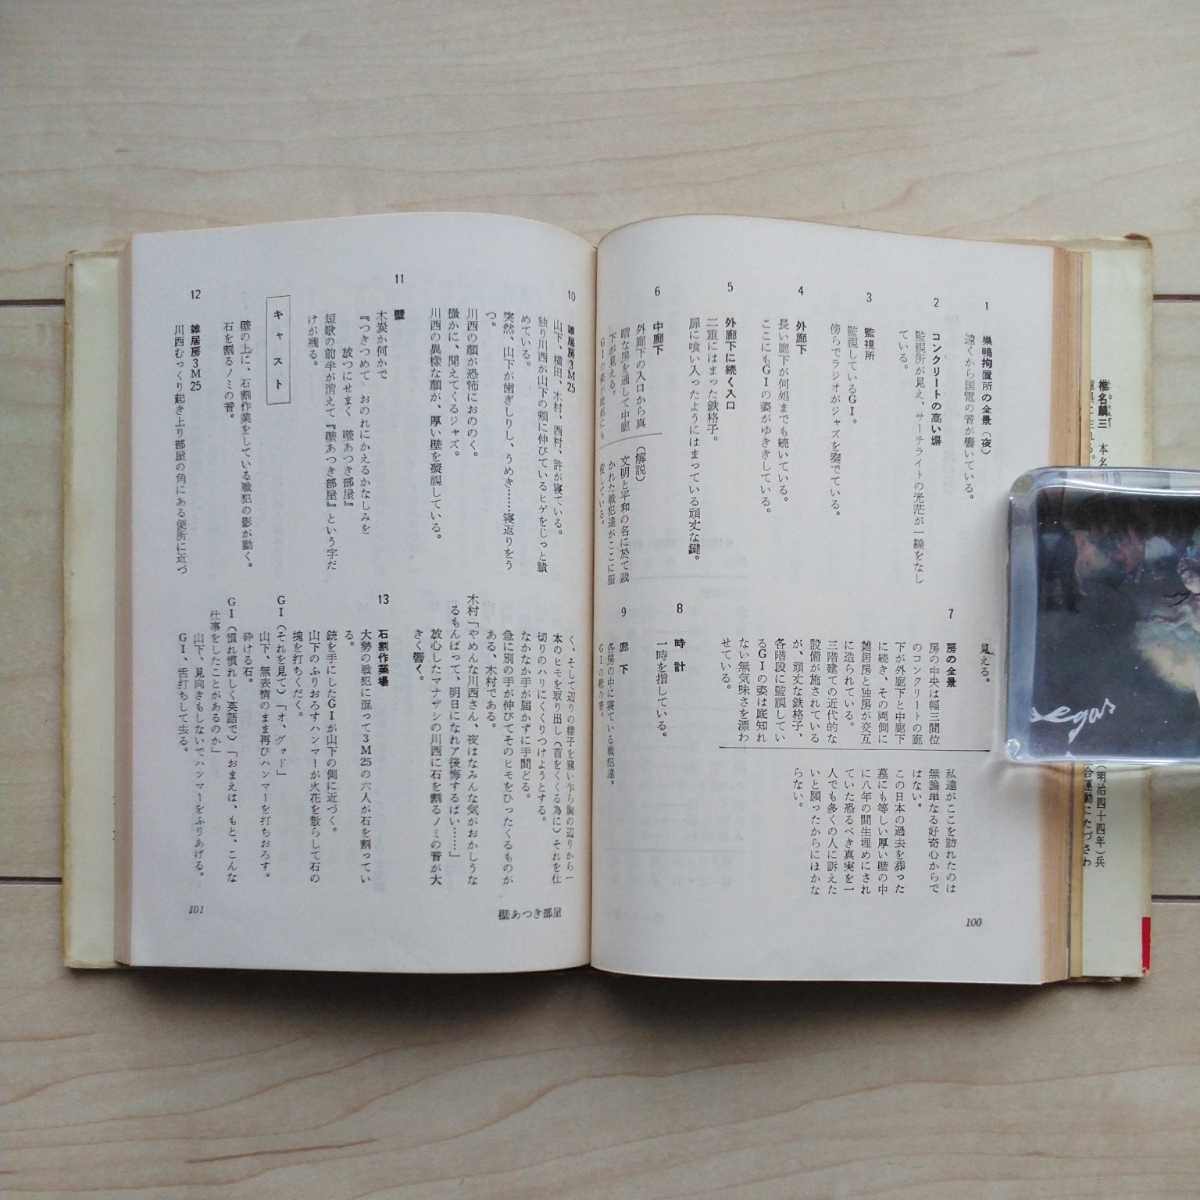 1
巣鴨拘置所の全景(夜)
遠くから国電の音が響いている。
2
コンクリートの高い塀
監視所が見え、サーチライトの光芒が一線をなし
ている。
3
監視所
監視しているGI。
傍らでラジオがジャズを奏でている。
4
外廊下
長い廊下が何処までも続いている。
ここにもGIの姿がゆききしている。
5
外廊下に続く入口
二重にはまった鉄格子。
扉に喰い入ったようにはまっている頑丈な鍵。
6
中廊下
外廊下の入口から真
暗な房を通して中廊
下が見える。
(解説) 文明と平和の名に於て裁
かれた戦犯達がここに服
見える。
7
房の全景
房の中央は幅三間位
のコンクリートの廊
下が外廊下と中廊下
に続き、その両側に
雑居房と独房が交互
に造られている。
三階建ての近代的な
設備が施されている
が、頑丈な鉄格子、
各階段に監視してい
るGIの姿は底知れ
ない無気味さを漂わ
せている。
私達がここを訪れたのは
無論単なる好奇心からで
はない。
この日本の過去を葬った
墓にも等しい厚い壁の中
に八年の間生埋めにされ
ていた恐るべき真実を一
人でも多くの人に訴えた
いと願ったからにほかな
らない。
8
時計
一時を指している。
9
廊下
各房の中に寝ている戦犯達。
100
10
雑居房3M25
山下、横田、木村、西村、許が寝ている。
独り川西が山下の頬に伸びているヒゲをじっと瞶
めている。
突然、山下が歯ぎしりし、うめき……寝返りをう
つ。
川西の顔が恐怖におののく。
微かに、聞えてくるジャズ。
川西の異様な顔が、厚い壁を凝視している。
11
壁
木炭か何かで
『つきつめて おのれにかえるかなしみを
放つにせまく 壁あつき部屋』
短歌の前半が消えて『壁あつき部屋』という字だ
けが残る。
キャスト
壁の上に、石割作業をしている戦犯の影が動く。
石を割るノミの音。
12
雑居房3M25
川西むっくり起き上り部屋の角にある便所に近づ
く、そして辺りの様子を窺い乍ら胸の辺りから一
本のヒモを取り出し(首をくくる為に)それを仕
切りのハリにくくりつけようとする。
なかなか手が届かずに手間どる。
急に別の手が伸びてそのヒモをひったくるものが
ある、木村である。
木村「やめんな川西さん、夜はなみんな気がおかしうな
るもんばって、明日になれァ後悔するばい……」
放心したマナザシの川西に石を割るノミの音が大
きく響く。
13
石割作業場
大勢の戦犯に混って3M25の六人が石を割ってい
る。
銃を手にしたGIが山下の側に近づく。
山下のふりおろすハンマーが火花を散らして石の
塊を打ちくだく。
GI(それを見て)「オ、グッド」
山下、無表情のまま再びハンマーを打ちおろす。
砕ける石。
GI(慣れ慣れしく英語で)「おまえは、もと、こんな
仕事をしたことがあるのか」
山下、見向きもしないでハンマーをふりあげる。
GI、舌打ちして去る。
101
壁あつき部屋
椎名麟三
本名
(明治四十四年)兵
合運動にたづさわ
Degas